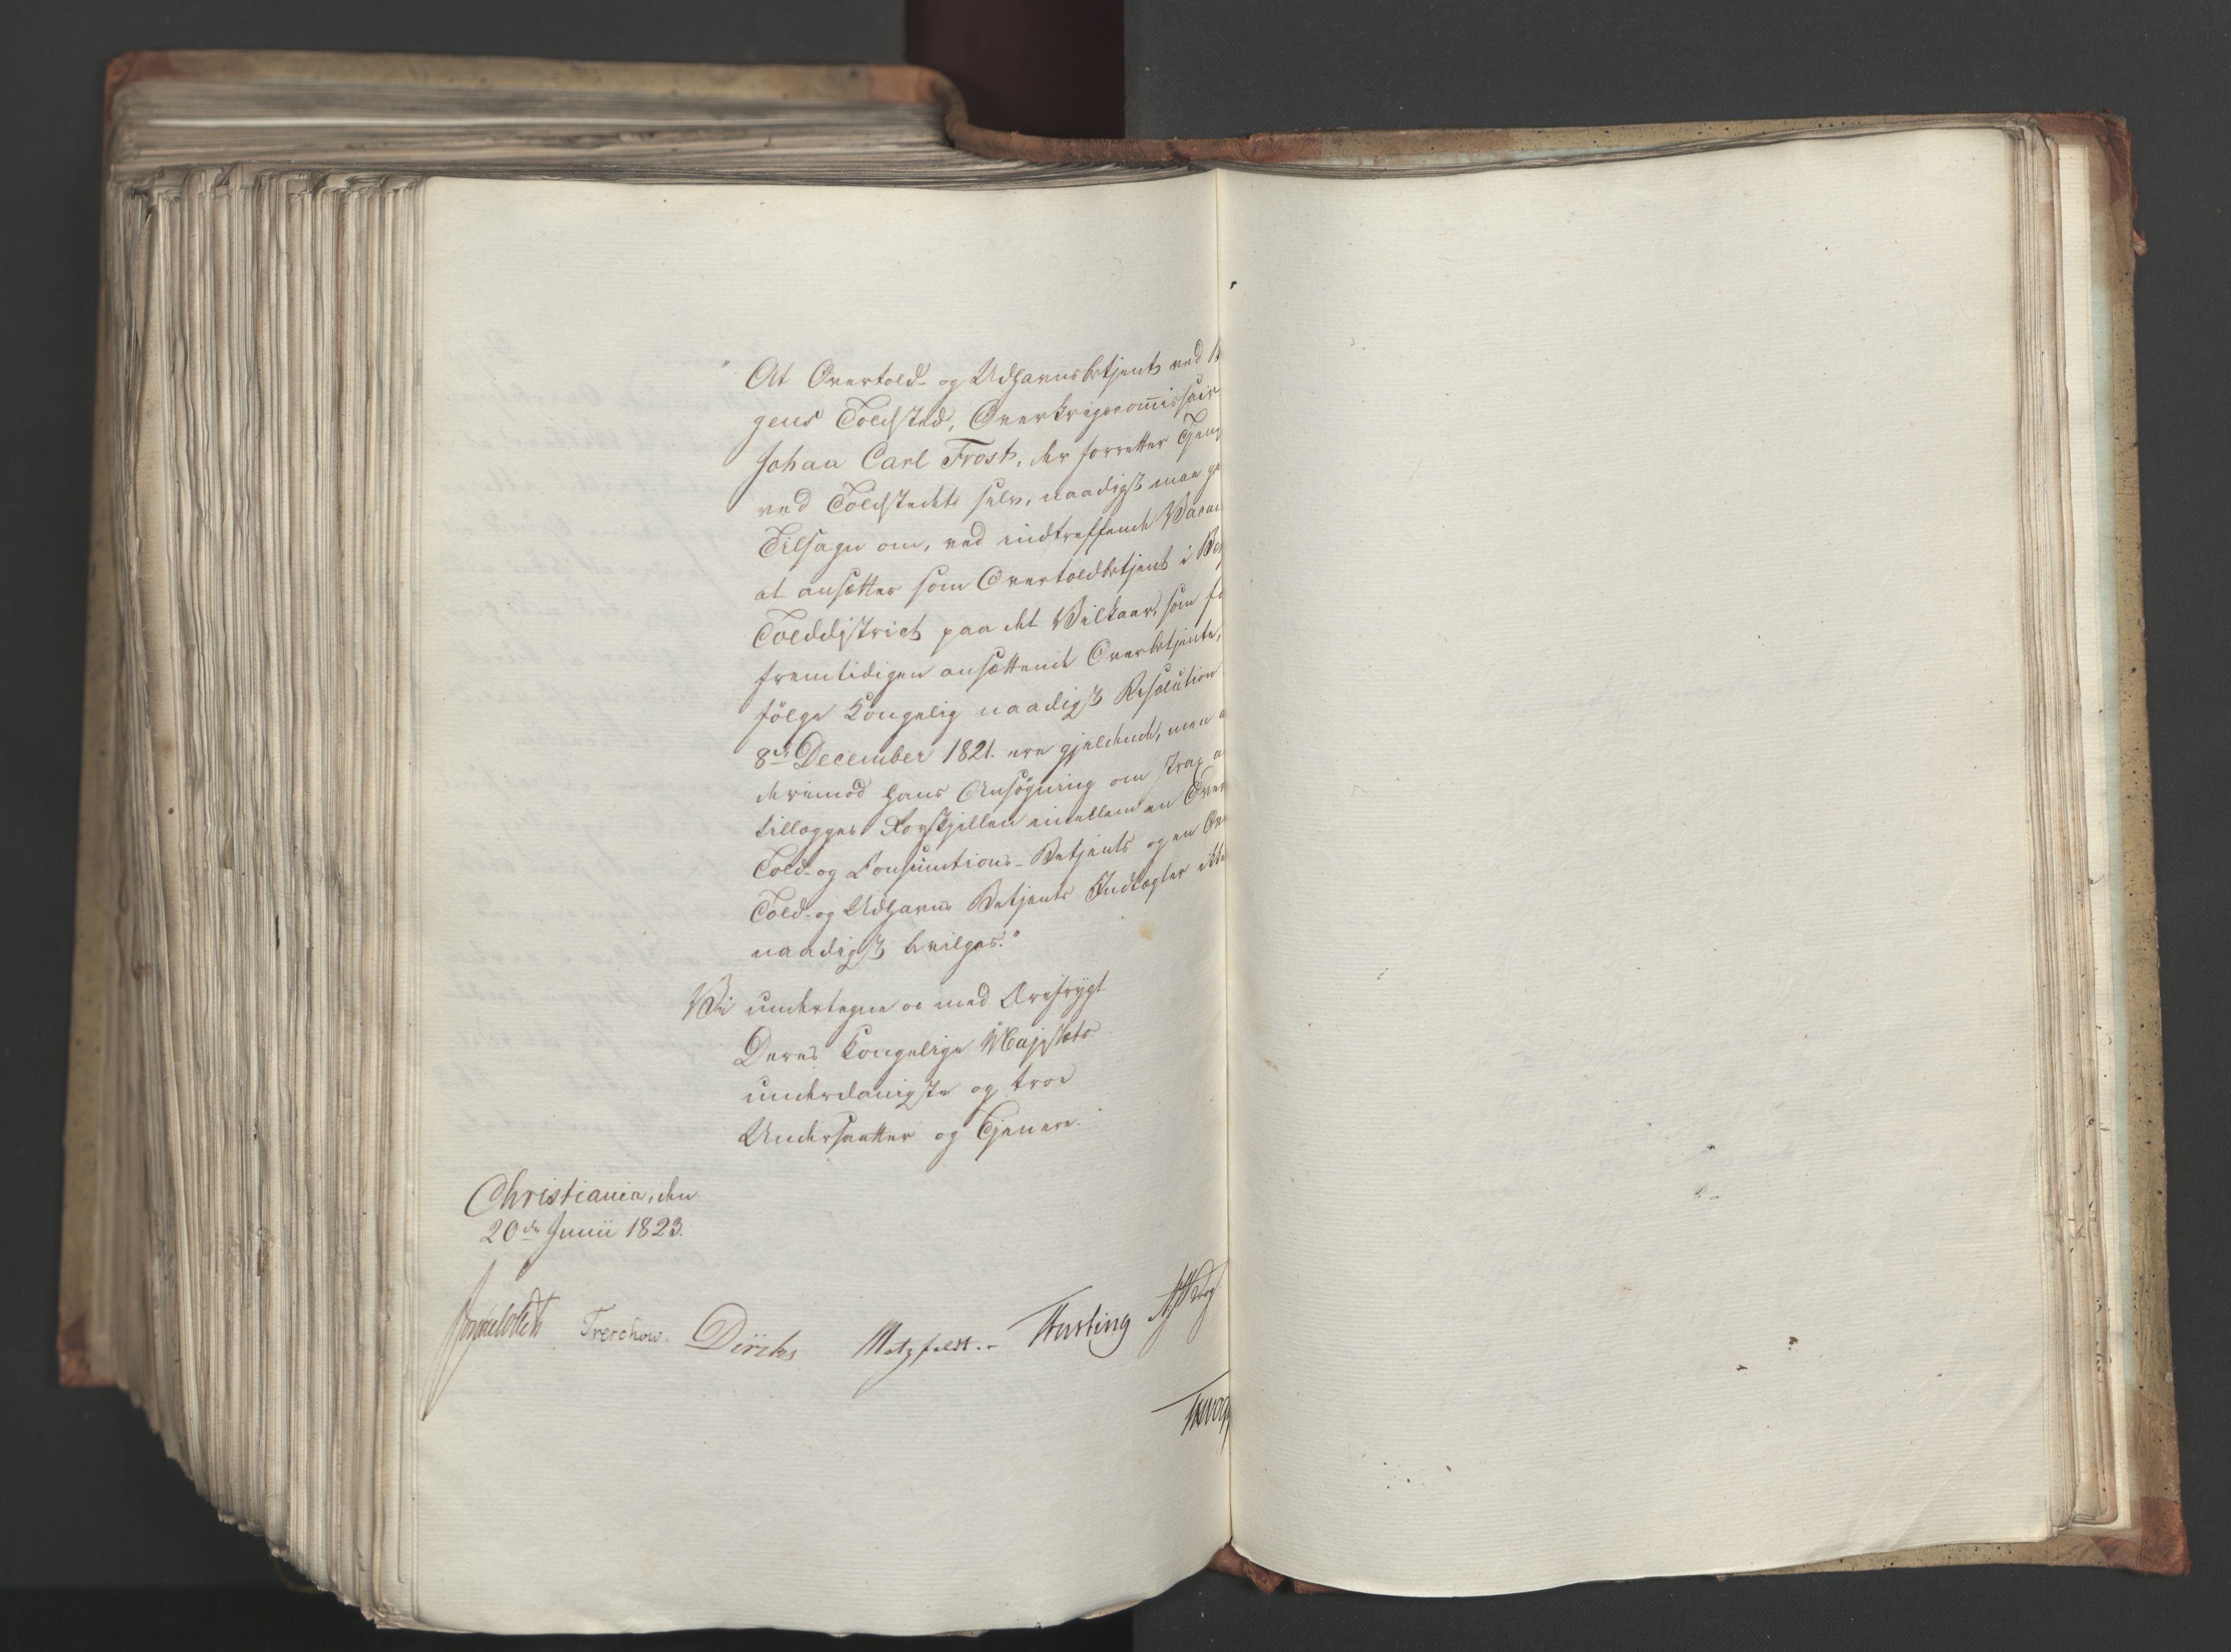 "At Overtold- og Udhavnsbetjent ved
gens Toldsted, Overkrigscommissair
Johan Carl Frost, der forretter
ved Toldstedet selv, naadigst maa
Tilsagn om, ved indtreffende
at ansættes som Overtoldbetjent i
Tolddistrict paa det Vilkaar, som
fremtidigen ansættende Overbetjente,
følge Kongelig naadigst Resolution
8de December 1821. ere gjeldende, men
derimod hans Ansøgning om strax
tillægges Forskjellen imellem en
Told- og Consumtions-Betjents og en
Told- og Udhavns Betjents Indtægter ikke
naadigst bevilges."
Vi undertegne os med Ærefrygt
Deres Kongelige Majestæts
underdanigste og troe
Undersaatter og Tjenere.
Christiania, den
20de Junii 1823.
Treschow. Diriks Motzfeldt. Fasting